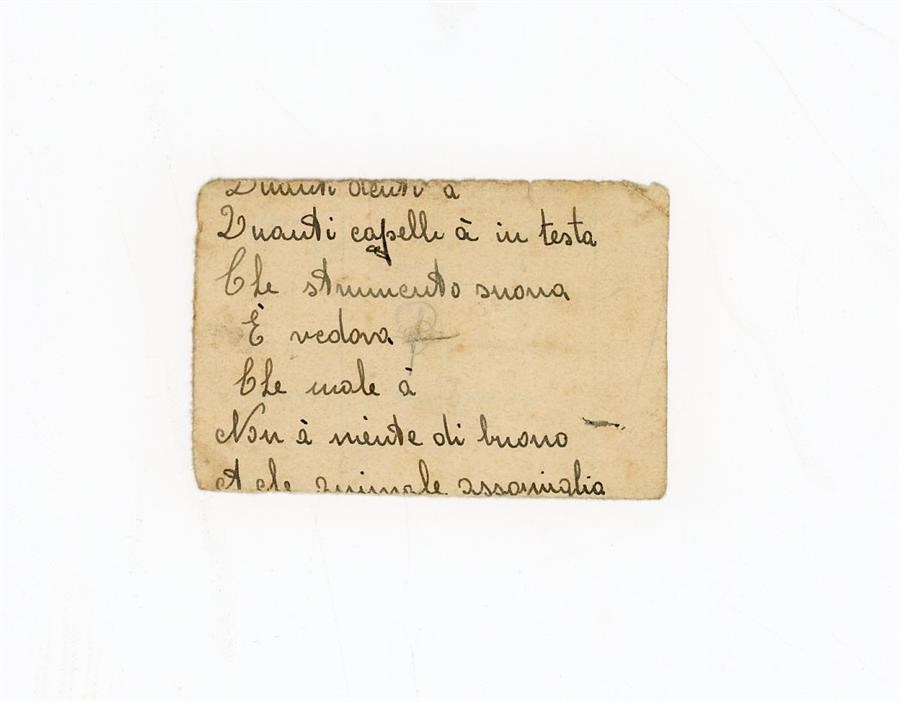 Quanti denti à
Quanti capelli à in testa
Che strumento suona
È vedova
Che male à
Non à niente di buono
A che animale assomiglia